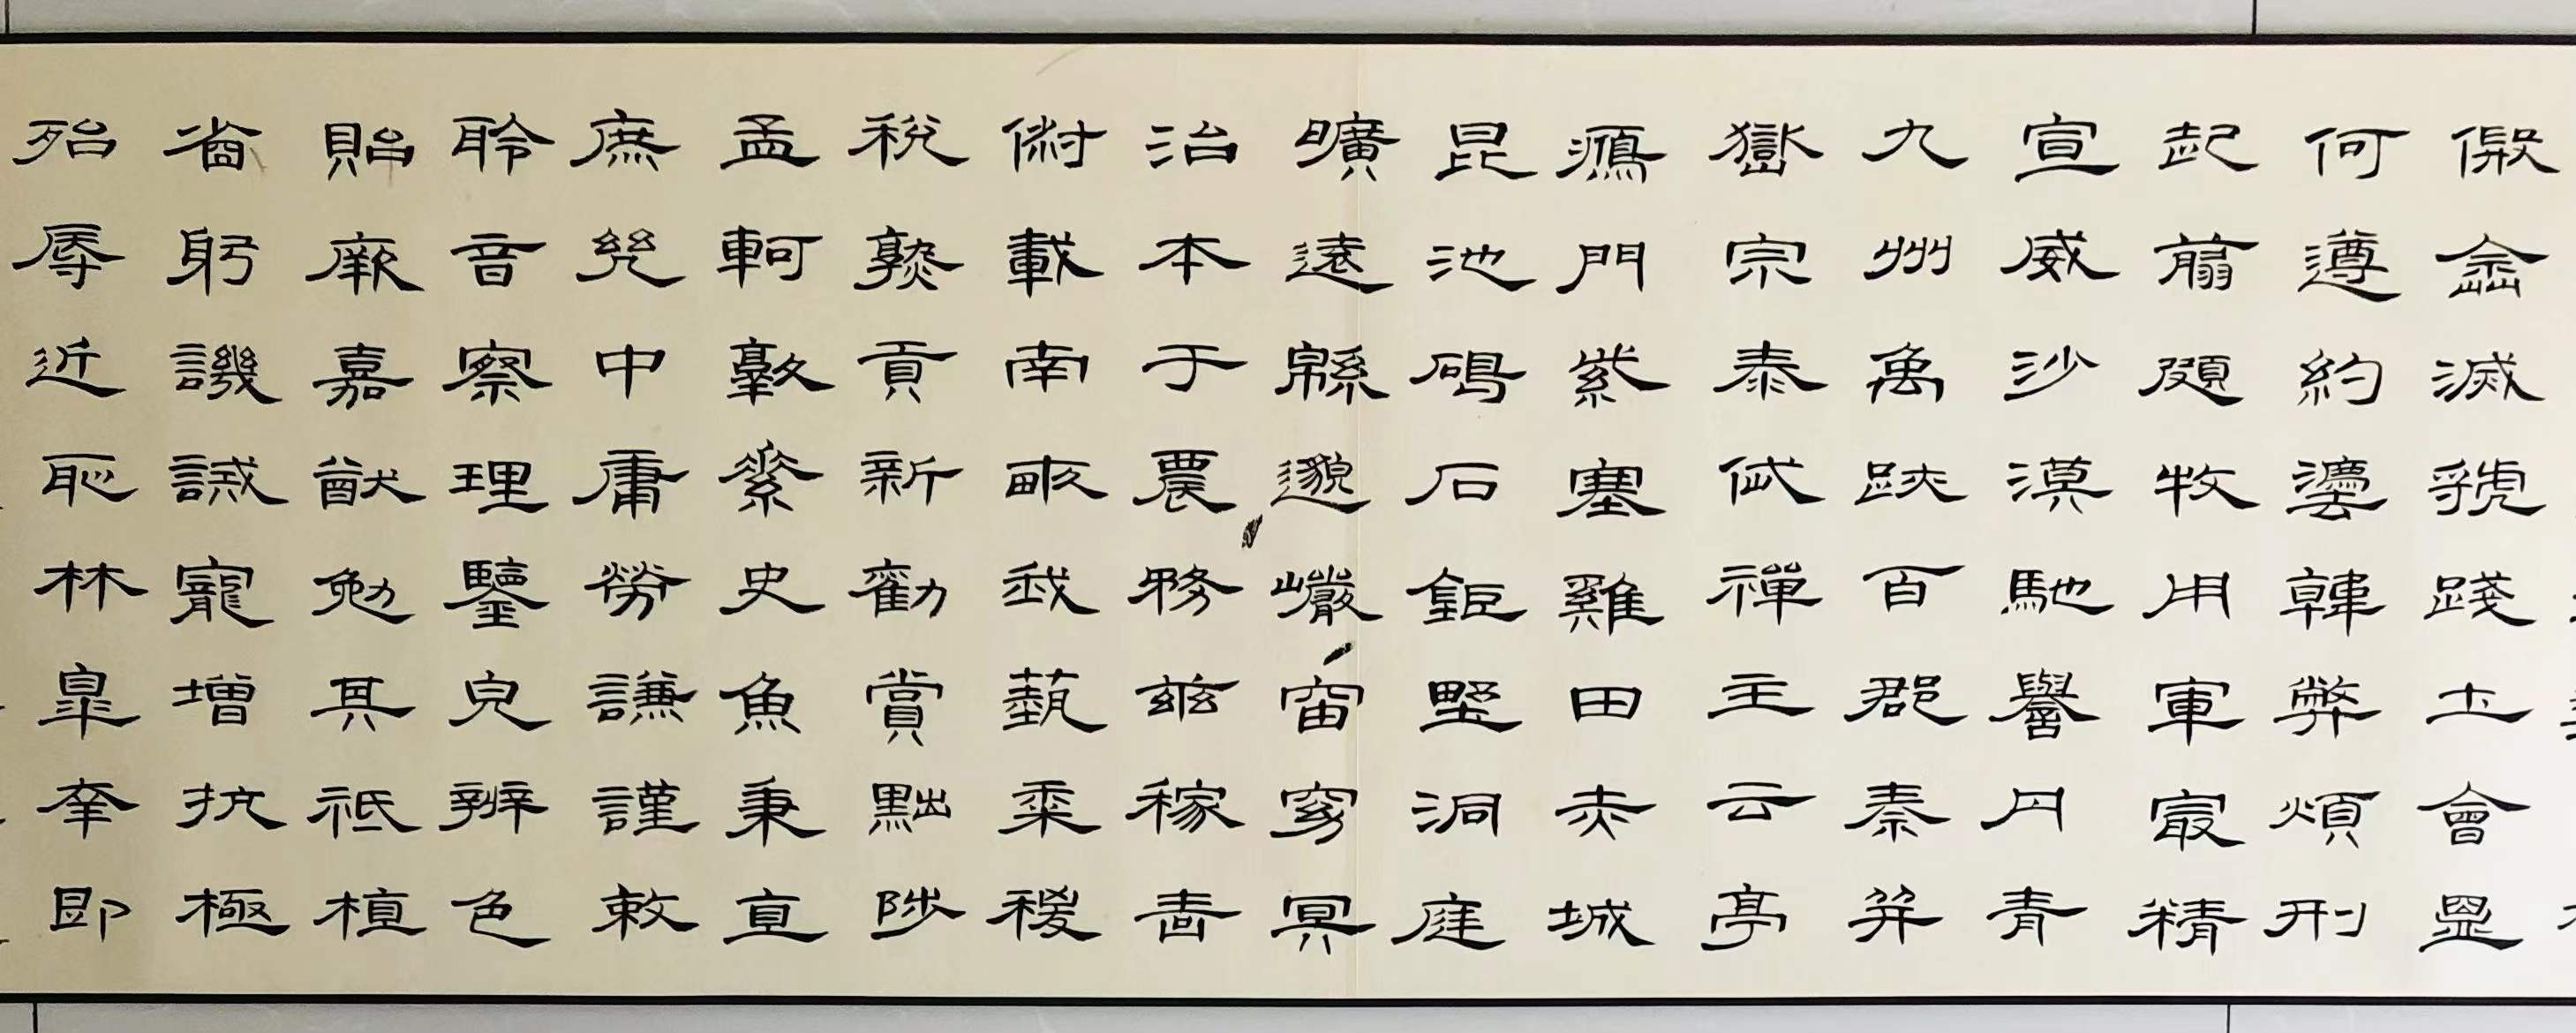 假嵞滅虢踐土會盟
何遵約灋韓弊煩刑
起翦頗牧用軍最精
宣威沙漠馳譽丹青
九州禹跡百郡秦并
嶽宗泰岱禪主云亭
鴈門紫塞雞田赤城
昆池碣石鉅野洞庭
曠遠緜邈巖宙窈冥
治本于農務茲稼嗇
俶載南畝我藝黍稷
稅熟貢新勸賞黜陟
孟軻敦素史魚秉直
庶幾中庸勞謙謹敕
聆音察理鑒皃辨色
貽厥嘉猷勉其祗植
省躬譏誡寵增抗極
殆辱近恥林皋幸即